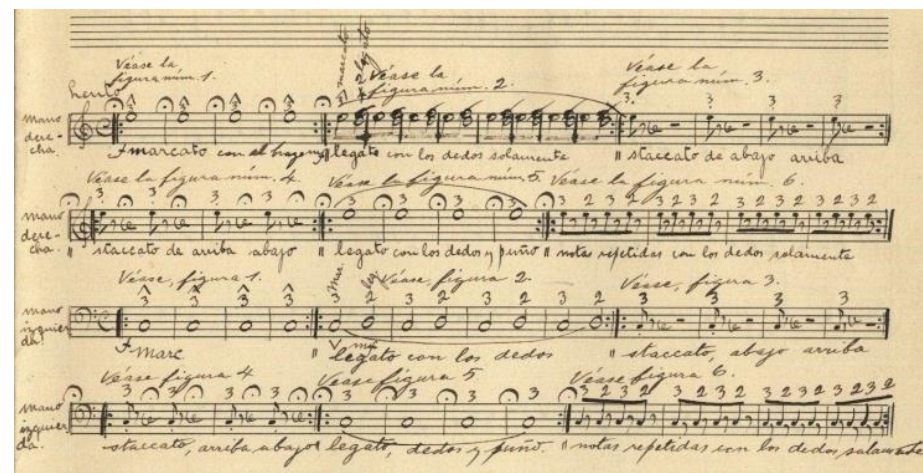 Véase la
figura núm. 1.
marcato
legato
Véase la
figura núm. 2.
Véase la
figura núm. 3.
Lento
3 3 3 3 3 3 3 3
mano
dere-
cha.
f marcato con el brazo mf legato con los dedos solamente " staccato de abajo arriba
Véase la figura núm. 4. Véase la figura núm. 5. Véase la figura núm. 6.
3 3 3 3 3 3 3 3 3 2 3 2 3 2 3 2 3 2 3 2
mano
dere-
cha.
" staccato de arriba abajo " legato con los dedos y puño " notas repetidas con los dedos solamente
Véase, figura 1. Véase, figura 2. Véase, figura 3.
3 3 3 3 3 2 3 2 3 2 3 2 3 3 3 3
mano
izquier
da.
f Marc mf legato con los dedos " staccato, abajo arriba
Véase figura 4 Véase figura 5 Véase figura 6.
3 3 3 3 3 3 3 3 3 2 3 2 3 2 3 2 3 2 3 2
mano
izquier
da.
staccato, arriba abajo " legato, dedos y puño. " notas repetidas con los dedos solamente